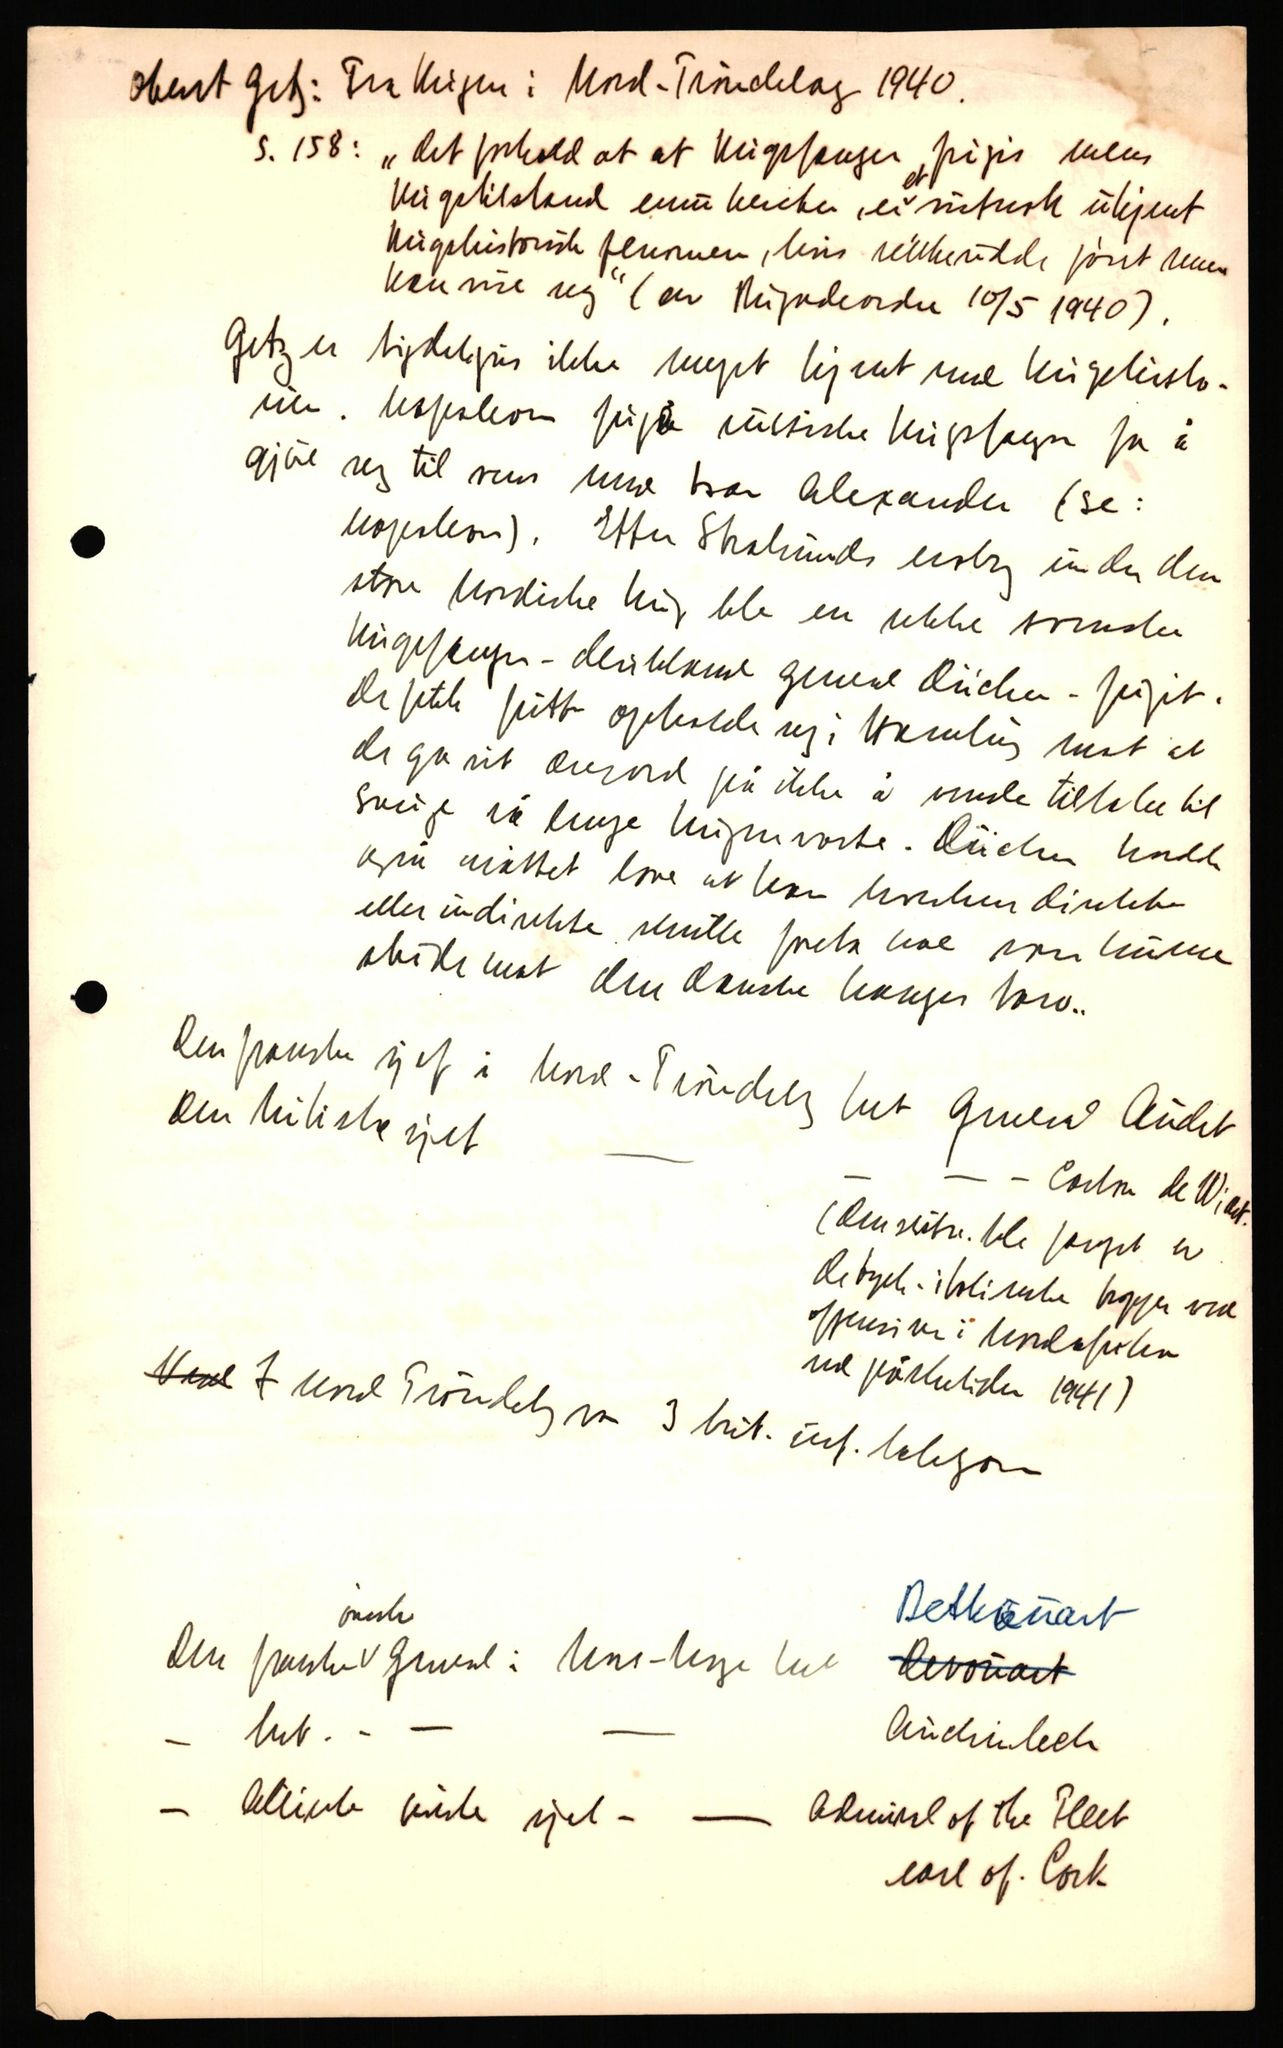 Oberst Getz: Fra Krigen i Nord-Tröndelag 1940.
s. 158: „Det forhold at at Krigsfanger frigis mens
Krigstilstand ennu hersker, er et nutresk ukjent
Krigshistorisk fenomen, hvis rekkevidde först senere
kan vise seg" (av Brigadeordre 10/5 1940).
Getz er tydeligvis ikke meget kjent med Krigshisto-
rien. Napoleon frigå russiske Krigsfanger for å
gjöre seg til vens med tsar Alexander (se:
Napoleon). Etter Stralsunds erobring under den
store Nordiske Krig ble en rekke svenske
Krigsfanger - deriblant general Dücker - frigit.
De fikk fritt opholde seg i Hamburg mot at
de ga sit æresord på ikke å vende tilbake til
Sverige så lenge krigen varte. Dücker hadde
også måttet love at han hverken direkte
eller indirekte skulle foreta noe som kunne
stride mot den danske konges tarv..
Den franske sjef i Nord-Tröndelag het General Audet
Den britiske sjef — — — - Carton de Wiart.
(Den sistn. ble fanget av
de tysk-italienske tropper ved
offensiven i Nordafrika
ved påsketider 1941)
I Nord Tröndelag var 3 brit. inf. bataljoner
Den franske överste General i Nord-Norge het Bethouart
Devouart
— brit. - — — Auchinleck
— Allierte överste sjef - — Admiral of the Fleet
earl of. Cork